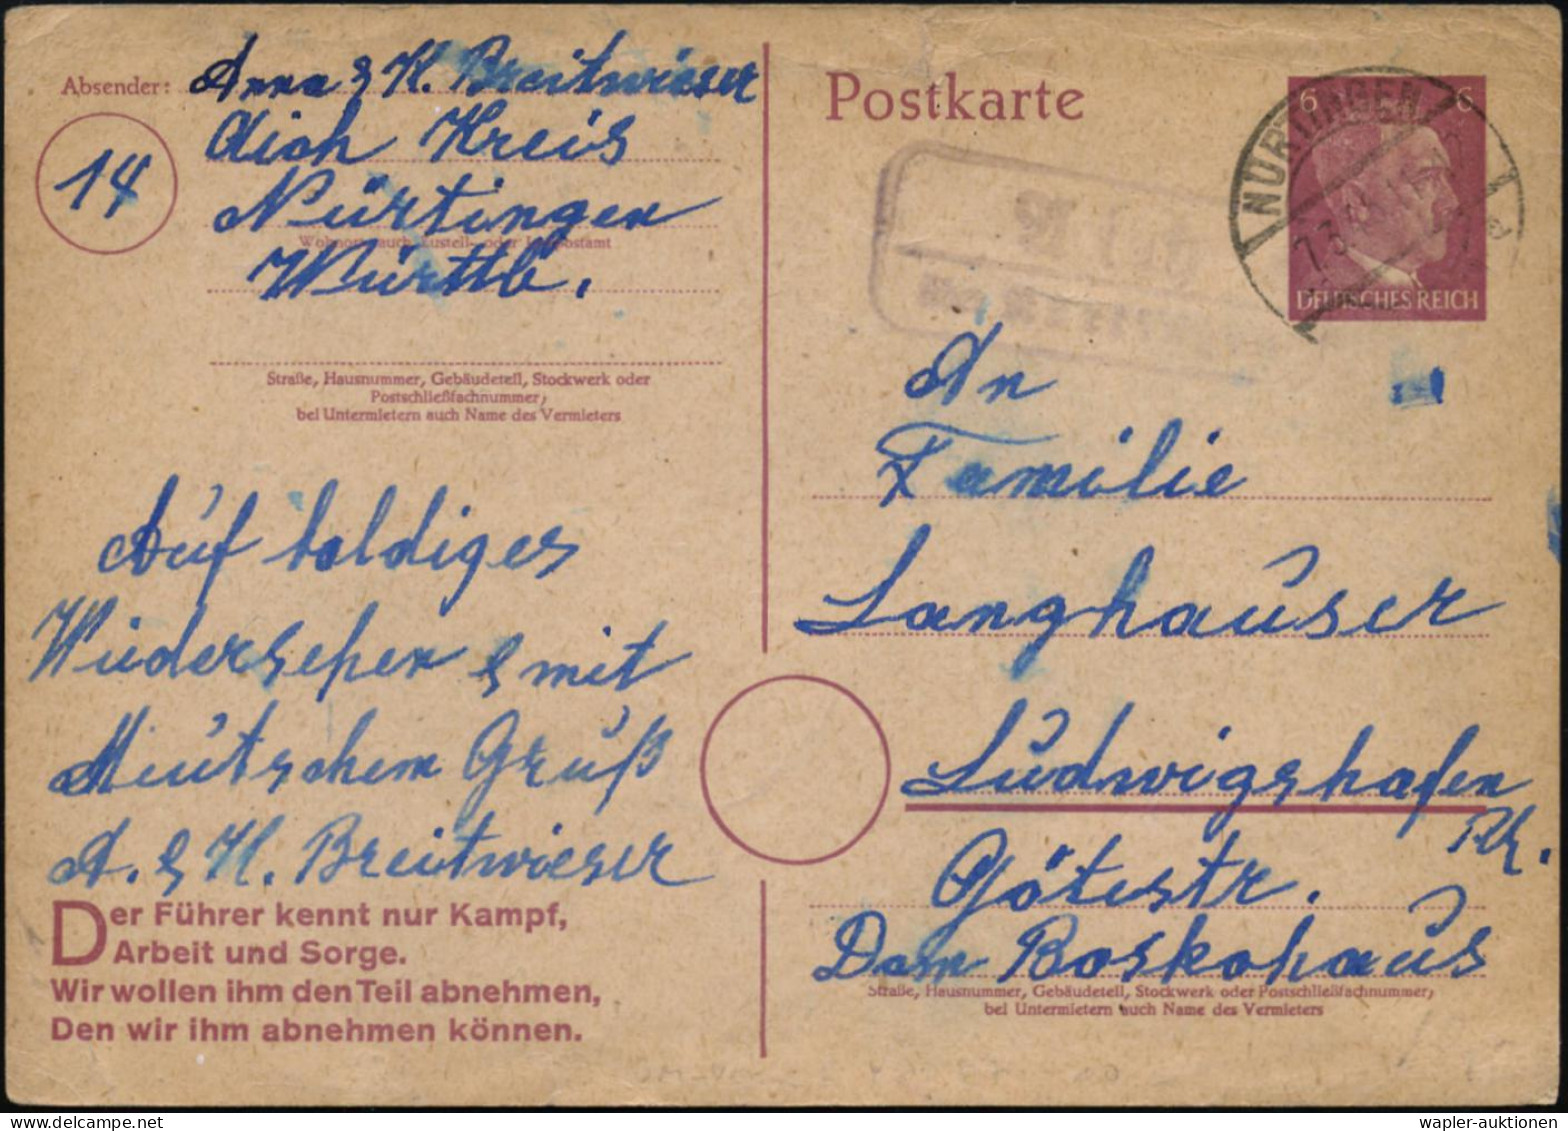 Absender: Anna & K. Breitwieser
Aich Kreis
Nürtingen
Wohnort, auch Zustell- oder Leitpostamt
Württb.
14
Straße, Hausnummer, Gebäudeteil, Stockwerk oder
Postschließfachnummer;
bei Untermietern auch Name des Vermieters
Auf baldiges
Wiedersehen & mit
Deutschem Gruß
A. & K. Breitwieser
Der Führer kennt nur Kampf,
Arbeit und Sorge.
Wir wollen ihm den Teil abnehmen,
Den wir ihm abnehmen können.
Postkarte
6 6
DEUTSCHES REICH
NÜRTINGEN
An
Familie
Langhauser
Ludwigshafen
Rh.
Götestr.
Dom Boskohaus
Straße, Hausnummer, Gebäudeteil, Stockwerk oder Postschließfachnummer;
bei Untermietern auch Name des Vermieters
wapler-auktionen